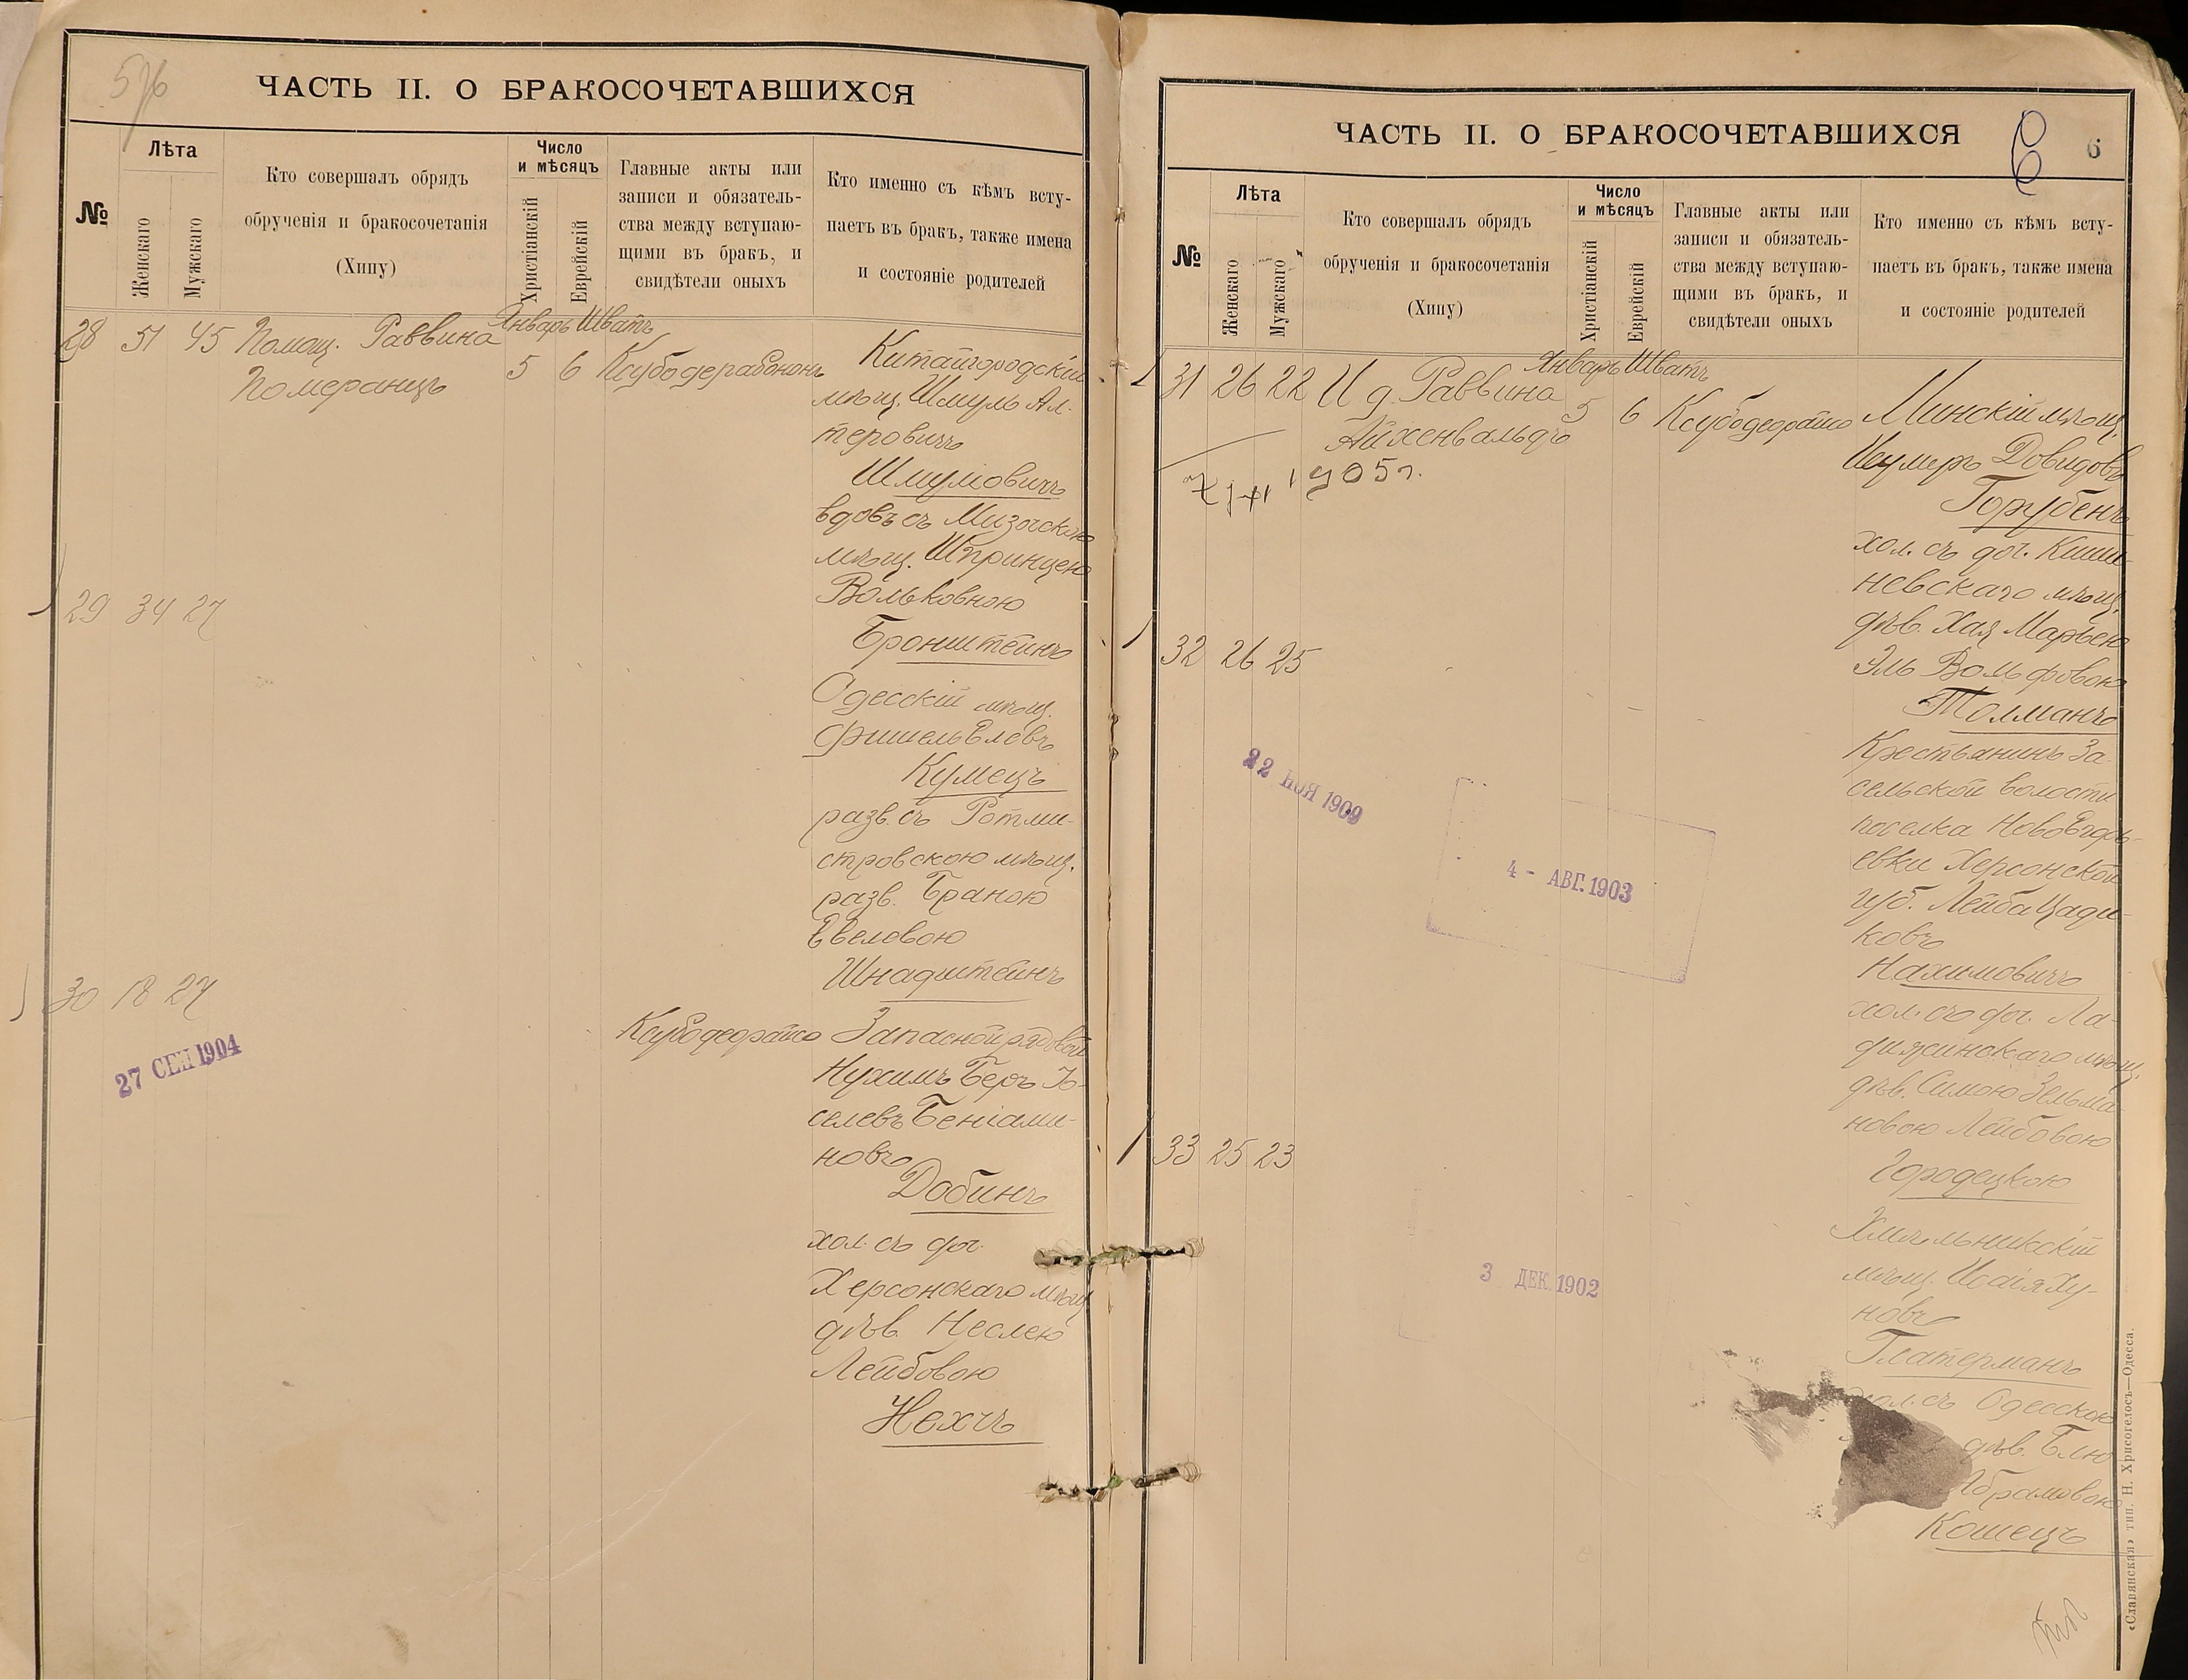 576
ЧАСТЬ II. О БРАКОСОЧЕТАВШИХСЯ
№
Лѣта
Женскаго
Мужскаго
Кто совершалъ обрядъ
обрученія и бракосочетанія
(Хипу)
Число
и мѣсяцъ
Христіанскій
Еврейскій
Главные акты или
записи и обязатель-
ства между вступаю-
щими въ бракъ, и
свидѣтели оныхъ
Кто именно съ кѣмъ всту-
паетъ въ бракъ, также имена
и состояніе родителей
Январь Шватъ
28 51 45 Помощ. Раввина
Померанцъ
5 6
Китайгородскій
мѣщ. Шмуль Ал-
теровичъ
Шмуловичъ
вдовъ съ Мизочскою
мѣщ. Шпринцею
Вольковною
Бронштейнъ
29 34 27
Одесскій мѣщ.
Фишель Елевъ
Кумецъ
разв. съ Ротми-
стровскою мѣщ.
разв. Браною
Евеловою
Шнадштейнъ
30 18 27
27 СЕН 1904
Ксубодеорайсо Запасной рядовой
Нухимъ Беръ Іо-
селевъ Беніами-
новъ
Добинъ
хол. съ доч.
Херсонскаго мѣщ.
дѣв. Неслею
Лейбовою
Нехчъ
ЧАСТЬ II. О БРАКОСОЧЕТАВШИХСЯ
6
6
№
Лѣта
Женскаго
Мужскаго
Кто совершалъ обрядъ
обрученія и бракосочетанія
(Хипу)
Число
и мѣсяцъ
Христіанскій
Еврейскій
Главные акты или
записи и обязатель-
ства между вступаю-
щими въ бракъ, и
свидѣтели оныхъ
Кто именно съ кѣмъ всту-
паетъ въ бракъ, также имена
и состояніе родителей
Январь Шватъ
31 26 22 И д. Раввина
Айхенвальдъ
5 6 Ксубодеорайсо Минскій мѣщ.
1905 г.
Довидовъ
Горубенъ
хол. съ доч. Киши-
невскаго мѣщ.
дѣв. Хая Марьею
Эль Вольфовою
Толманъ
32 26 25
Крестьянинъ За-
сельской волости
поселка НовоЕгорь-
евки Херсонской
губ. Лейба Цади-
ковъ
Нахимовичъ
хол. съ доч. Ла-
дижинскаго мѣщ.
дѣв. Симою Зельма-
новою Лейбовою
Городецкою
22 НОЯ 1909
4 - АВГ. 1903
33 25 23
Хмельникскій
мѣщ. Исаія Ху-
новъ
Глатерманъ
хол. съ Одесскою
дѣв. Блю
Абрамовою
Кошецъ
3 ДЕК. 1902
«Славянская» тип. Н. Хрисогелосъ—Одесса.